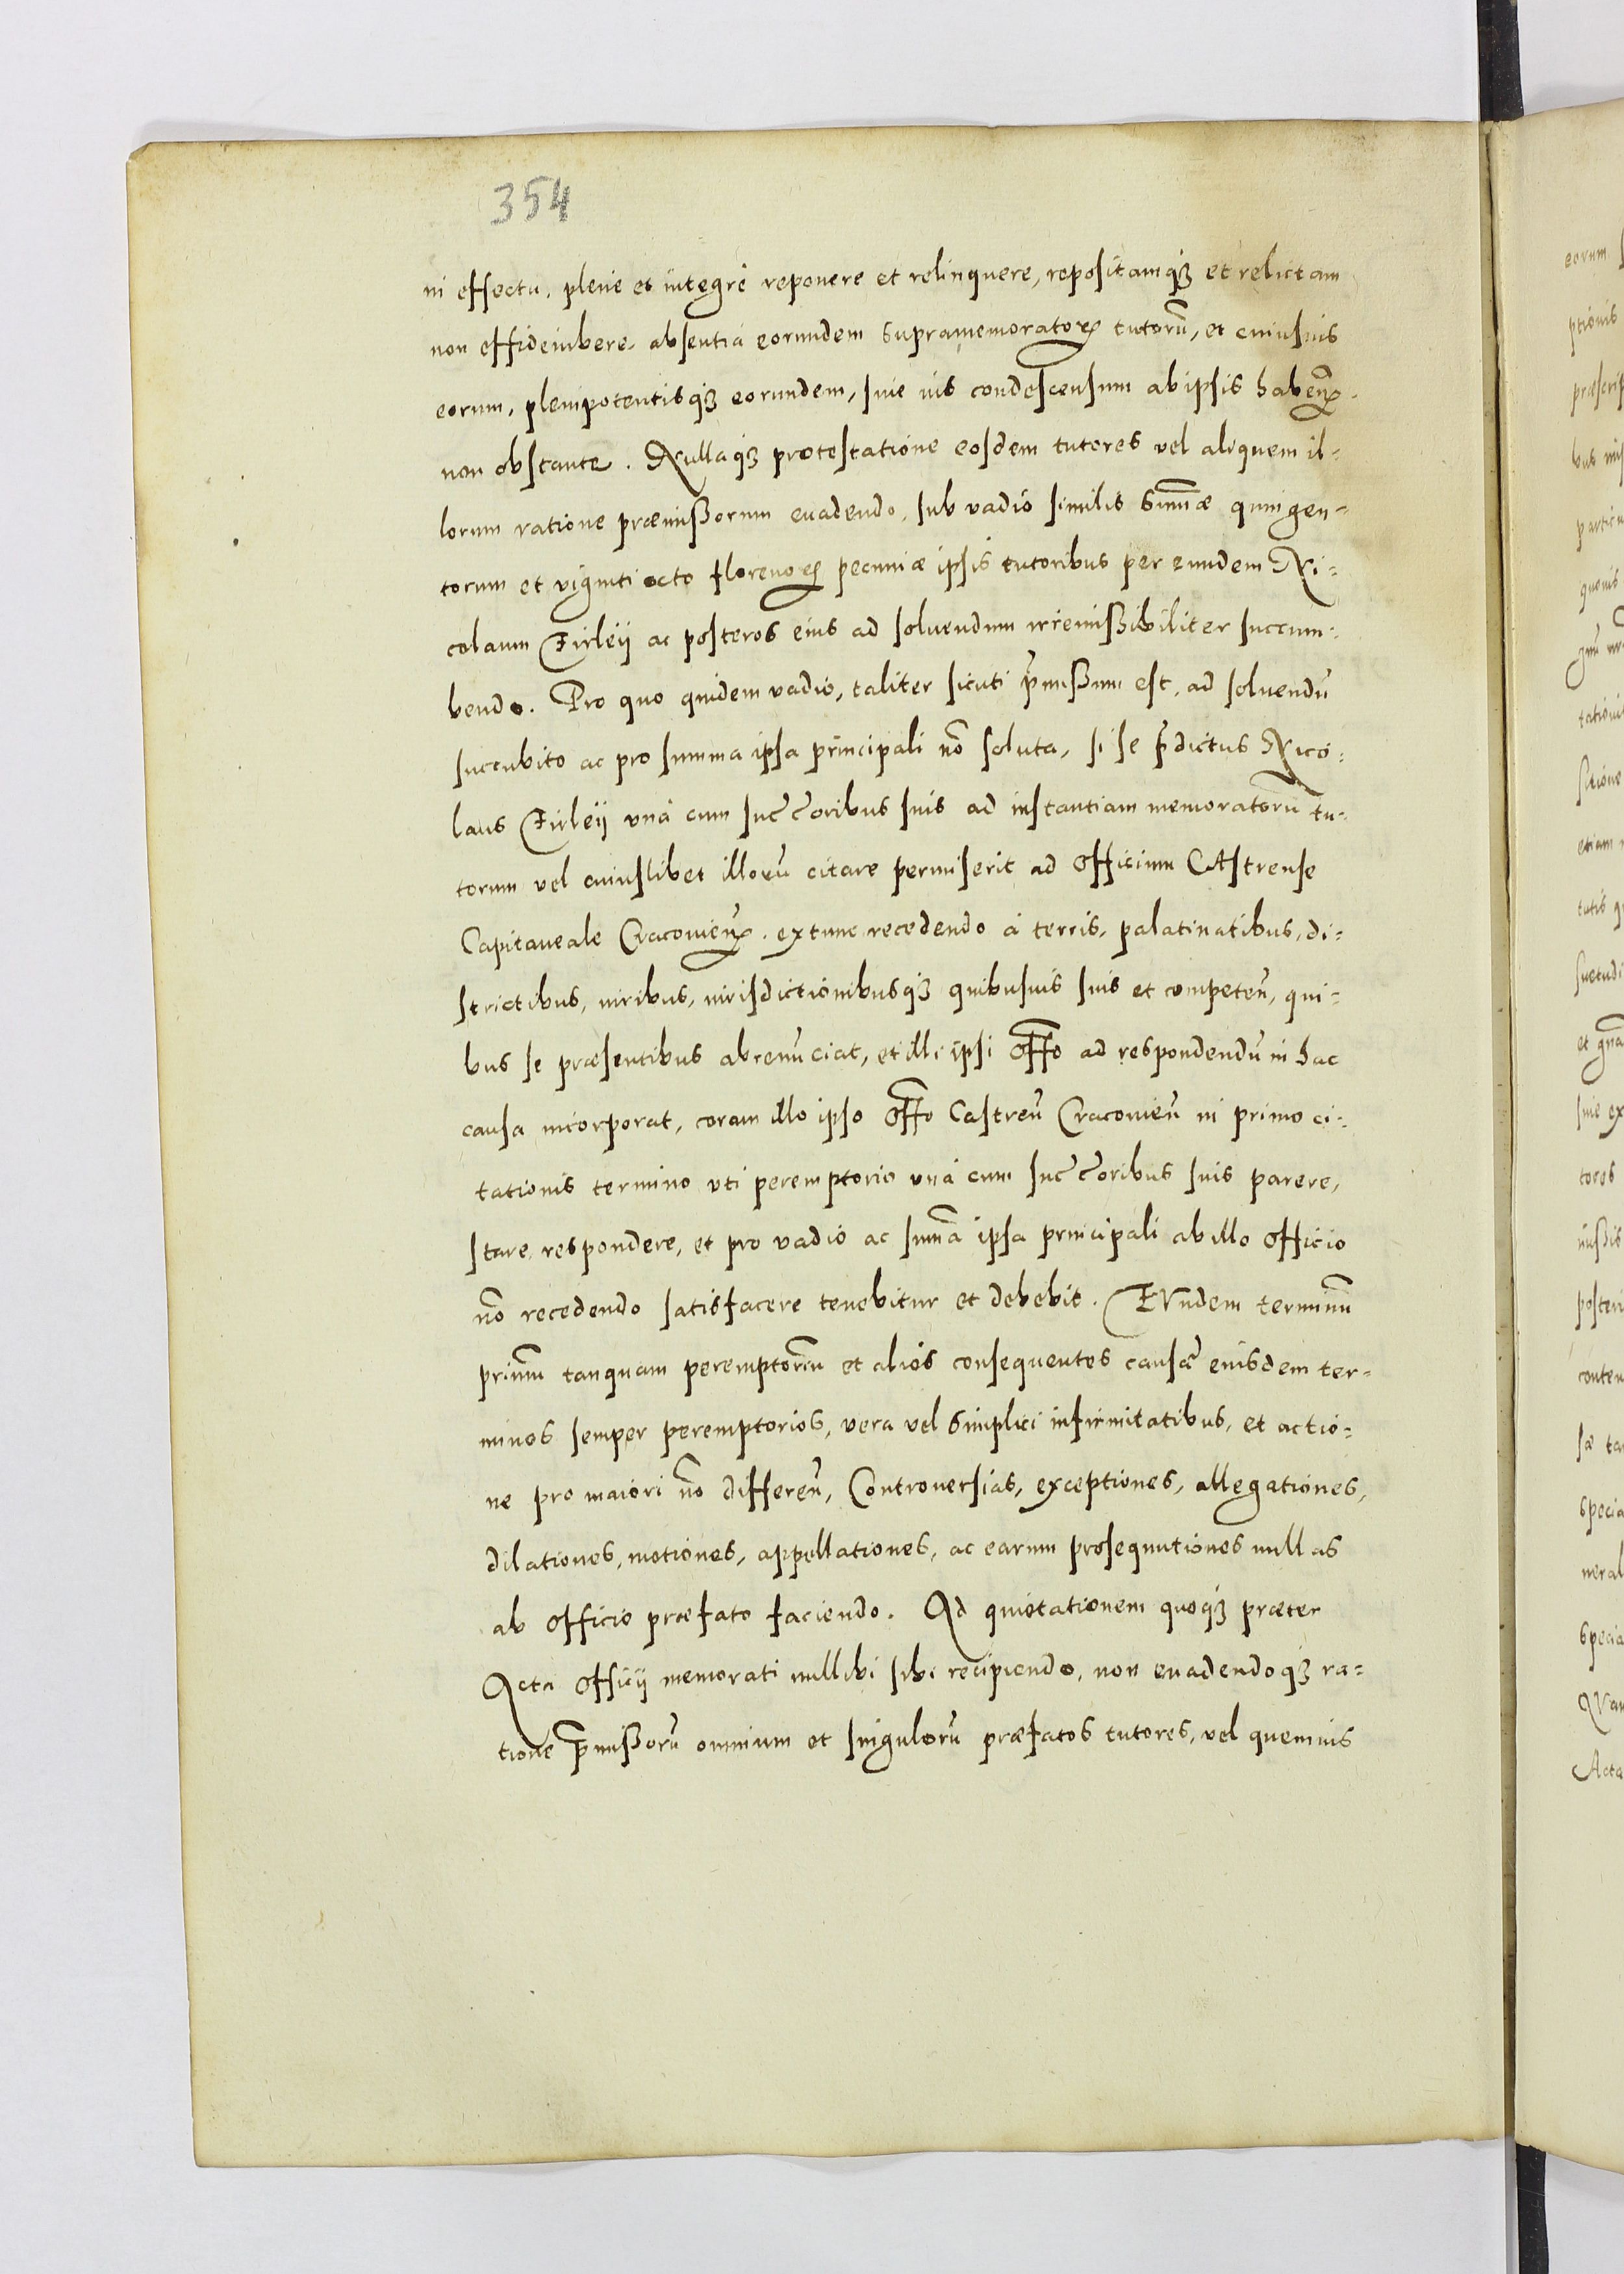 354
in effectu, plene et integrè reponere et relinquere, repositamq₃ et relictam
non effideiubere, absentia eorundem supramemoratoꝝ tutorū, et cuiusuis
eorum, plenipotentisq₃ eorundem, siue ius condescensum ab ipsis habeñ.
non obstante. Nullaq₃ protestatione eosdem tutores vel aliquem il-
lorum ratione præmissorum euadendo, sub vadio similis Sum̄æ quingen-
torum et viginti octo florenoꝝ pecuniæ ipsis tutoribus per eundem Ni-
colaum Firleij ac posteros eius ad soluendum irremissibiliter succum-
bendo. Pro quo quidem vadio, taliter sicuti p̄missum est, ad soluendū
succubito ac pro summa ipsa principali nō soluta, si se p̄dictus Nico-
laus Firleij vnà cum succ̄oribus suis ad instantiam memoratorū tu-
torum vel cuiuslibet illorū citare permiserit ad Officium CAstrense
Capitaneale Cracouieñ. extunc recedendo à terris, palatinatibus, di-
strictibus, iuribus, iurisdictionibusq₃ quibusuis suis et competeñ, qui-
bus se præsentibus abrenunciat, et illi ipsi Off̄o ad respondendū in hac
causa incorporat, coram illo ipso Off̄o Castreñ Cracouieñ in primo ci-
tationis termino vti peremptorio vnà cum succ̄oribus suis parere,
stare, respondere, et pro vadio ac sum̄a ipsa principali ab illo Officio
nō recedendo satisfacere tenebitur et debebit. EVndem terminū
primū tanquam peremptoriū et alios consequentes causæ eiusdem ter-
minos semper peremptorios, vera vel simplici infirmitatibus, et actio-
ne pro maiori nō differeñ, Controuersias, exceptiones, allegationes,
dilationes, motiones, appellationes, ac earum prosequutiones nullas
ab Officio præfato faciendo. Ad quietationem quoq₃ præter
Acta Officij memorati nullibi sibi recipiendo, non euadendoq₃ ra-
tione p̄missorū omnium et singulorū præfatos tutores, vel quemuis